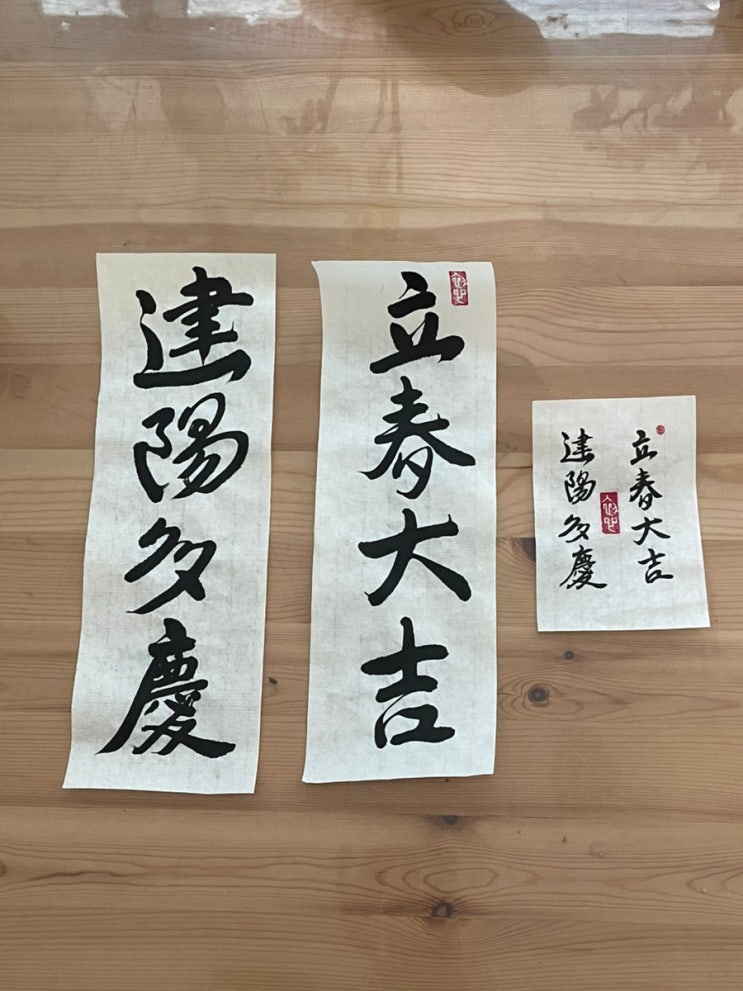 立春大吉
建陽多慶
立春大吉
建陽多慶